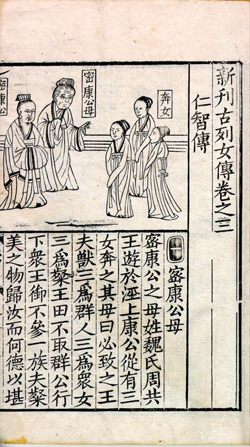 新刊古列女傳卷之三
仁智傳
奔女
密康公母
密康公
密康公母
密康公之母姓魏氏周共
王遊於涇上康公從有三
女奔之其母曰必致之王
夫獸三爲群人三爲衆女
三爲粲王田不取群公行
下衆王御不參一族夫粲
美之物歸汝而何德以堪